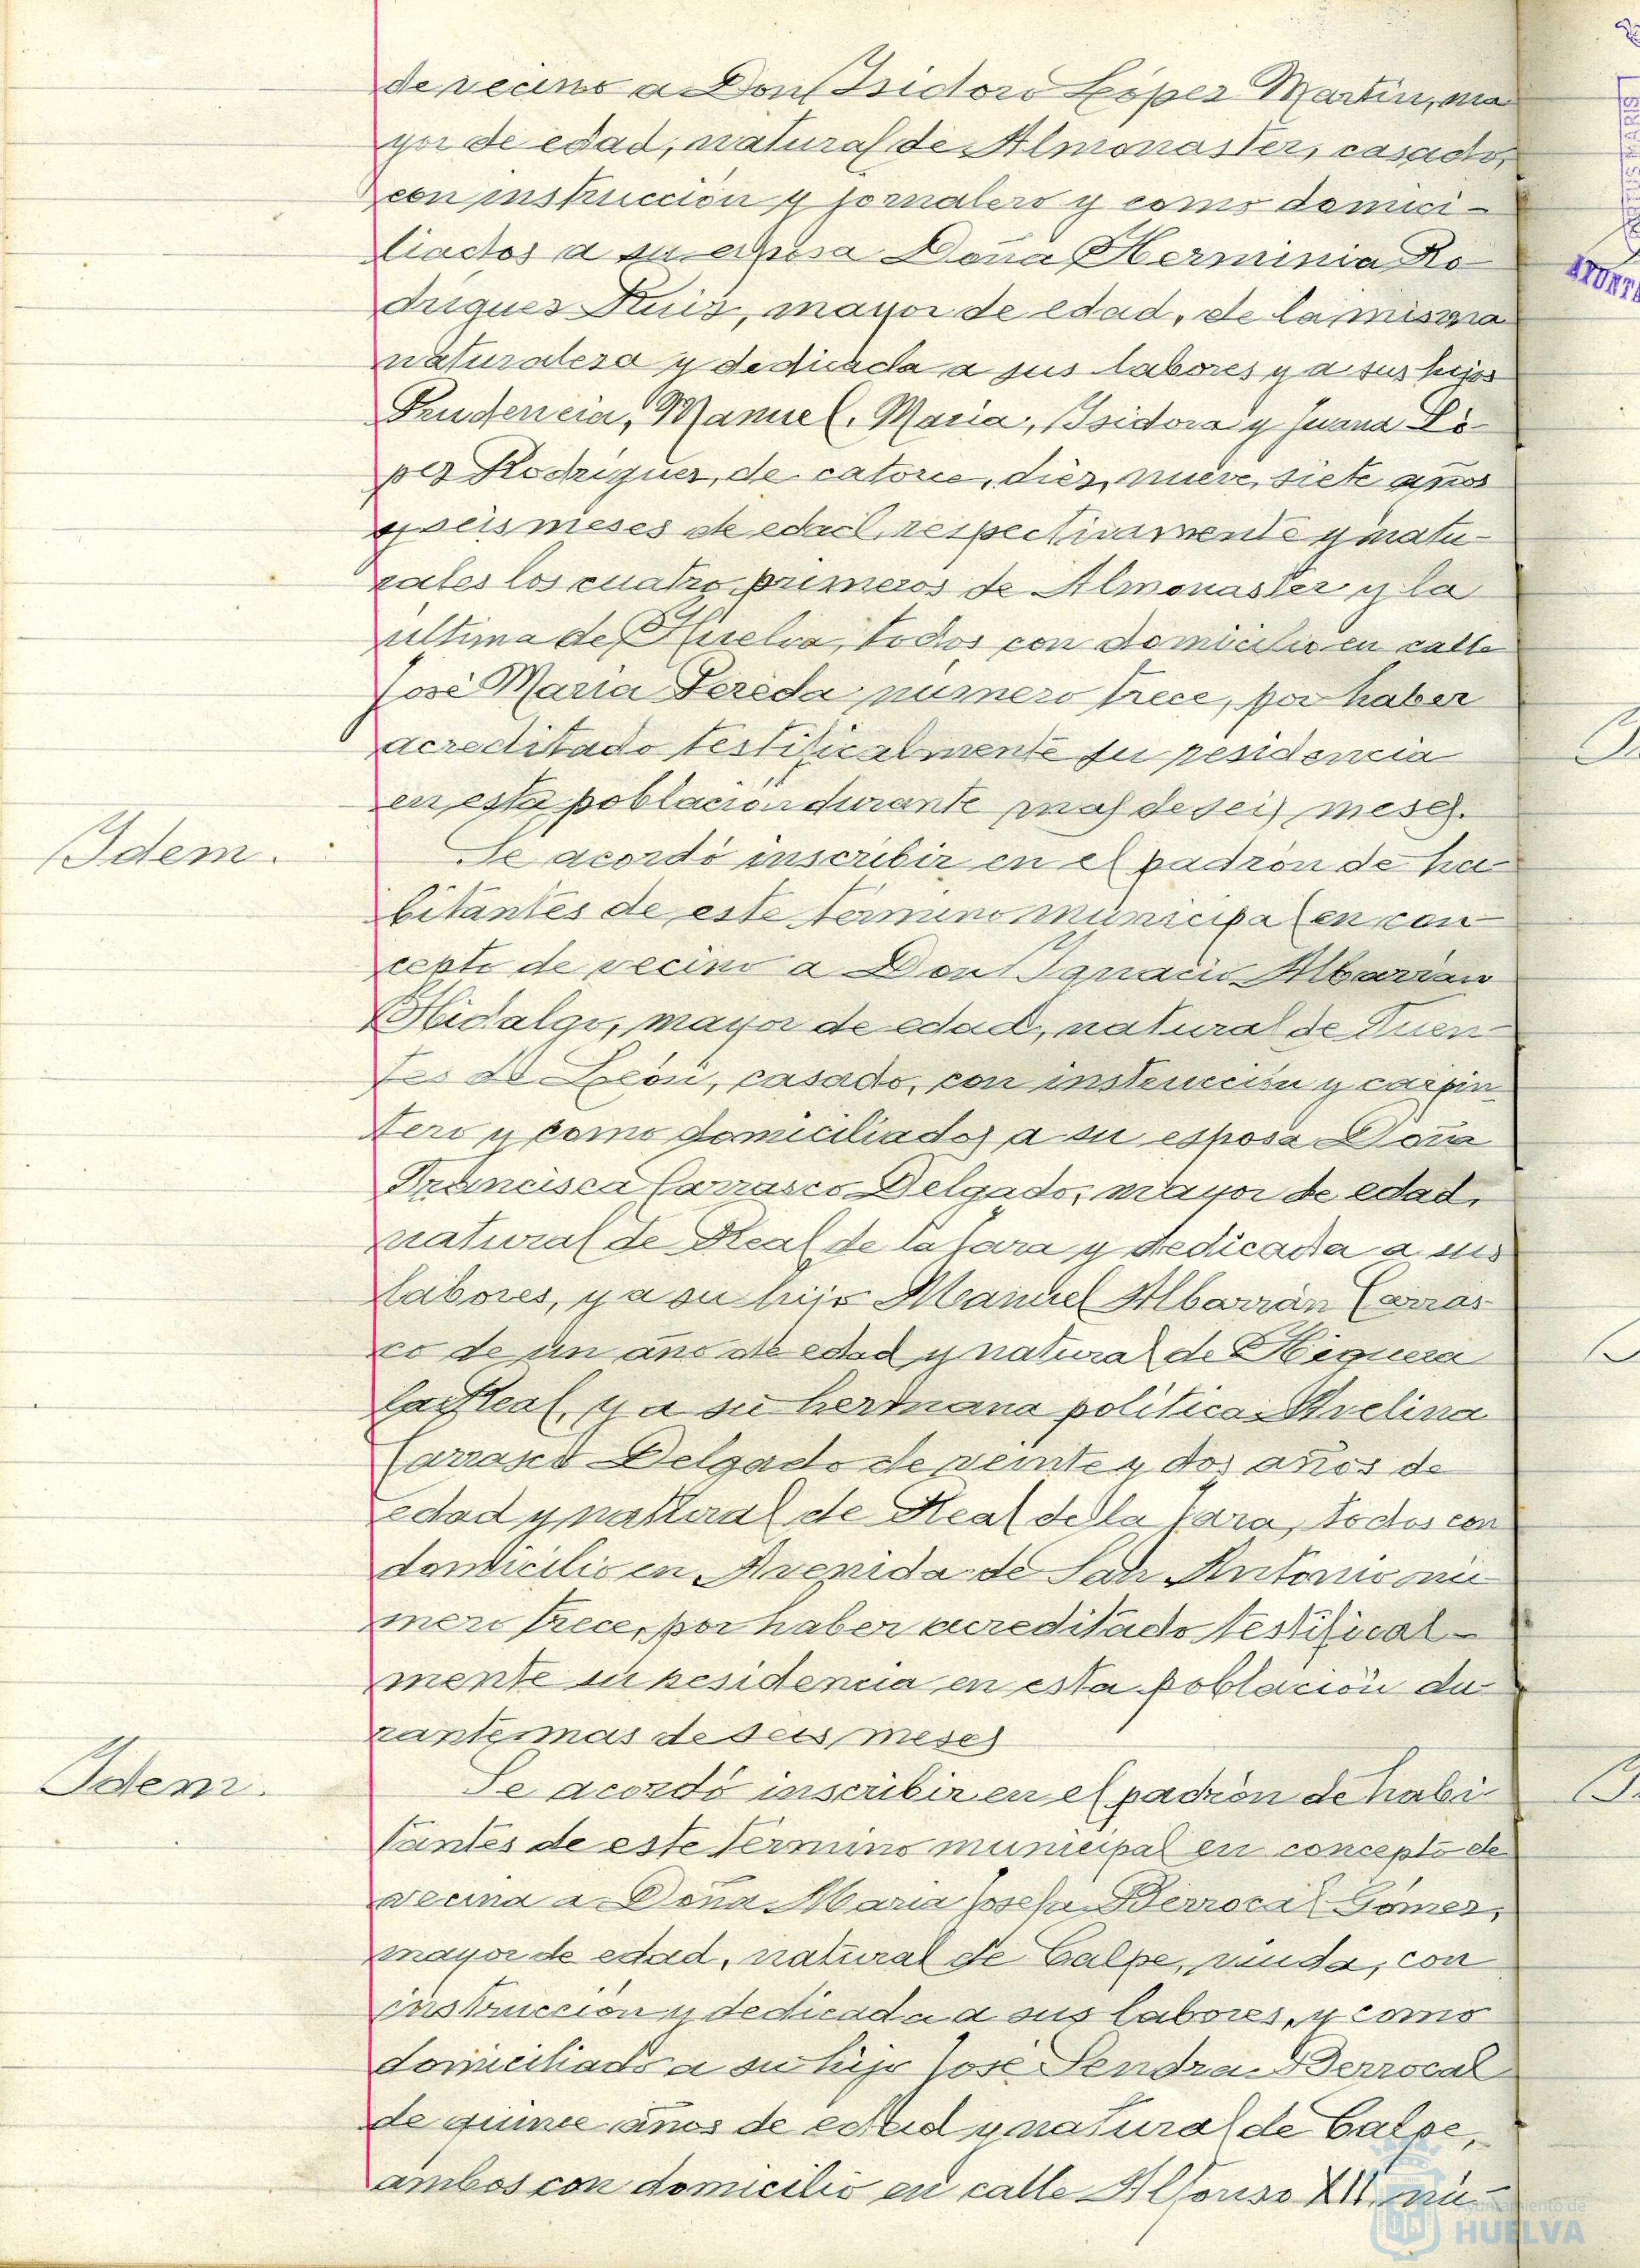 de vecino a Don Isidoro López Martín, ma
yor de edad, natural de Almonaster, casado,
con instrucción y jornalero y como domici-
liados a su esposa Doña Herminia Ro
driguez Ruiz, mayor de edad, de la misma
naturaleza y dedicada a sus labores y a sus hijos
Prudencia, Manuel, Maria, Isidora y Juana Ló-
pez Rodriguez, de catorce, diéz, nueve, siete años
y seis meses de edad, respectivamente y natu-
rales los cuatro primeros de Almonaster y la
última de Huelva, todos con domicilio en calle
José Maria Pereda número trece, por haber
acreditado testificalmente su residencia
en esta población durante mas de seis meses.
Idem. Se acordó inscribir en el padrón de ha-
bitantes de este término municipal en con-
cepto de vecino a Don Ignacio Albarrán
Hidalgo, mayor de edad, natural de Fuen-
tes de León, casado, con instrucción y carpin
tero y como domiciliados a su esposa Doña
Francisca Carrasco Delgado, mayor de edad,
natural de Real de la Jara y dedicada a sus
labores, y a su hijo Manuel Albarrán Carras-
co de un año de edad y natural de Higuera
la Real, y a su hermana politica Avelina
Carrasco Delgado de veinte y dos años de
edad y natural de Real de la Jara, todos con
domicilio en Avenida de San Antonio nú
mero trece, por haber acreditado testifical-
mente su residencia en esta población du-
rante mas de seis meses
Idem. Se acordó inscribir en el padrón de habi-
tantes de este término municipal en concepto de
vecina a Doña Maria Josefa Berrocal Gómez,
mayor de edad, natural de Calpe, viuda, con
instrucción y dedicada a sus labores, y como
domiciliado a su hijo José Sendra Berrocal
de quince años de edad y natural de Calpe,
ambos con domicilio en calle Alfonso XII, nú-
AYUNTA
Ayuntamiento de
HUELVA